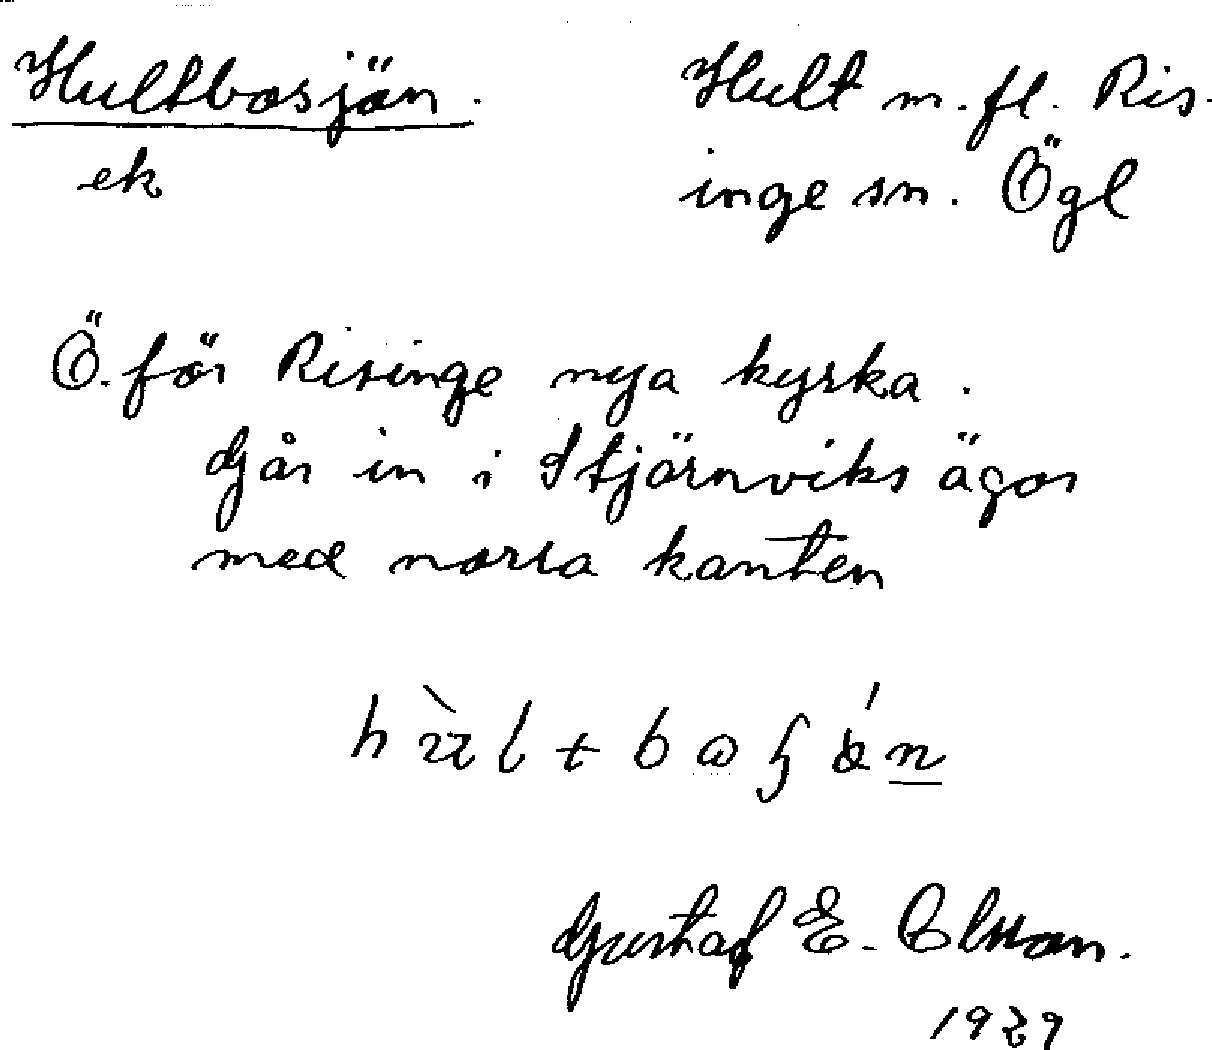 Hultbosjön.
ek
Hult m.fl. Ris-
inge sn. Ögl
Ö. för Risinge nya kyrka.
Går in i Stjärnviks ägor
med norra kanten
Gustaf E. Olsson.
1929